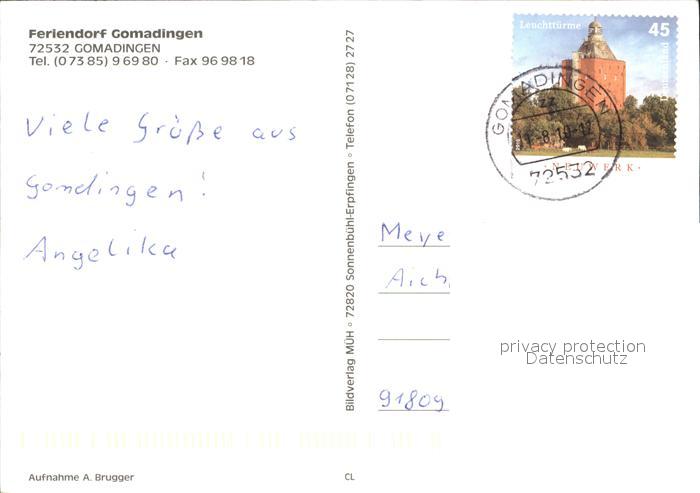 Feriendorf Gomadingen
72532 GOMADINGEN
Tel. (0 73 85) 9 69 80 · Fax 96 98 18
Viele Grüße aus
Gomdingen!
Angelika
Bildverlag MÜH ◦ 72820 Sonnenbühl-Erpfingen ◦ Telefon (0 71 28) 27 27
Leuchttürme
45
Deutschland
NEUWERK
GOMADINGEN
72532
Meye
Aich
91809
privacy protection
Datenschutz
Aufnahme A. Brugger
CL